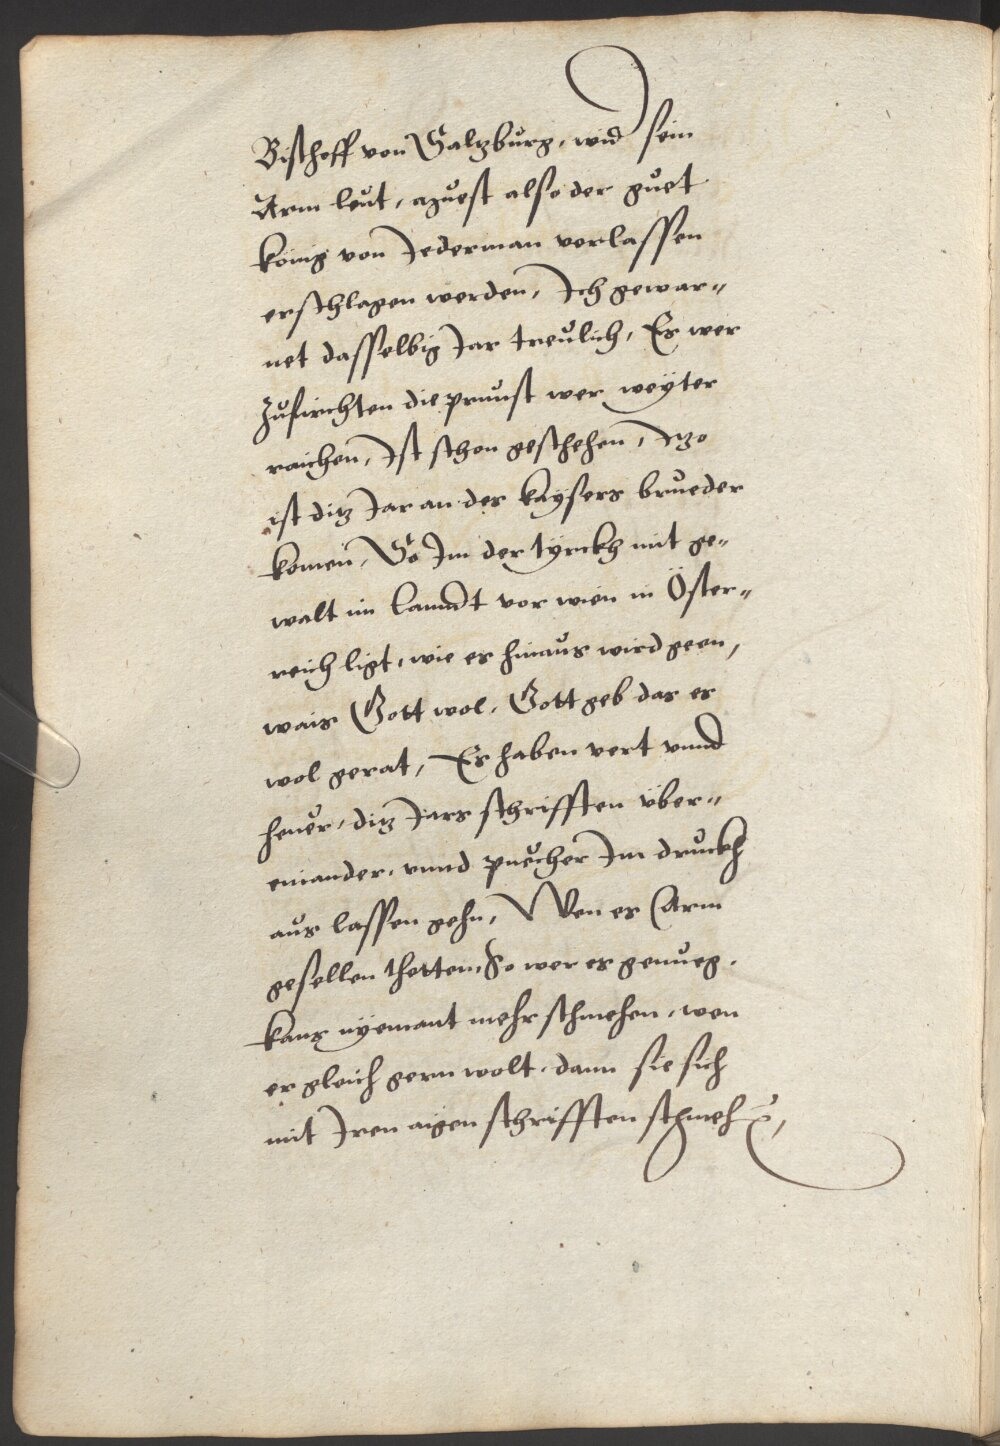 Bischoff von Saltzburg, wid sein
Arm leut, muest also der guet
könig von Jederman verlassen
erschlagen werden, Ich gewar„
net dasselbig Jar treulich, Es wer
Zufürchten die prunst wer weyter
raichen, Ist schon geschehen, Itzo
ist ditz Jar an des kaysers brueder
komen, So Im der türckh mit ge„
walt im lanndt vor wien in Öster„
reich ligt, wie es hinaus wird geen,
wais Gott wol, Gott geb das es
wol gerat, Es haben vert vnnd
heuer, ditz Jars schrifften über„
einander, vnnd puecher Im druckh
aus lassen gehn, Wen es Arm
gesellen thetten, So wer es genueg,
kans nyemant mehr schmehen, wen
er gleich gern wolt, dann sie sich
mit Iren aigen schrifften schmeh